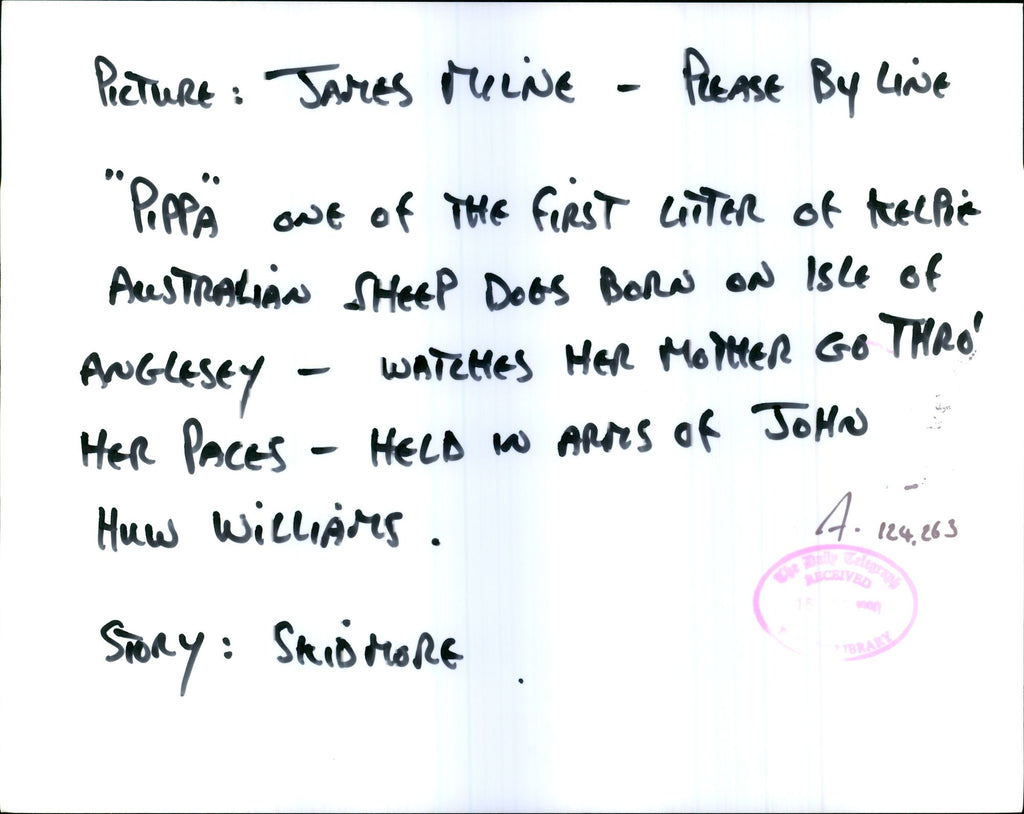 PICTURE: JAMES MILNE - PLEASE BY LINE
"PIPPA" ONE OF THE FIRST LITTER OF KELPIE
AUSTRALIAN SHEEP DOGS BORN ON ISLE OF
ANGLESEY - WATCHES HER MOTHER GO THRO'
HER PACES - HELD IN ARMS OF JOHN
HUW WILLIAMS.
A. 124,263
The Daily Telegraph
RECEIVED
LIBRARY
STORY: SKIDMORE